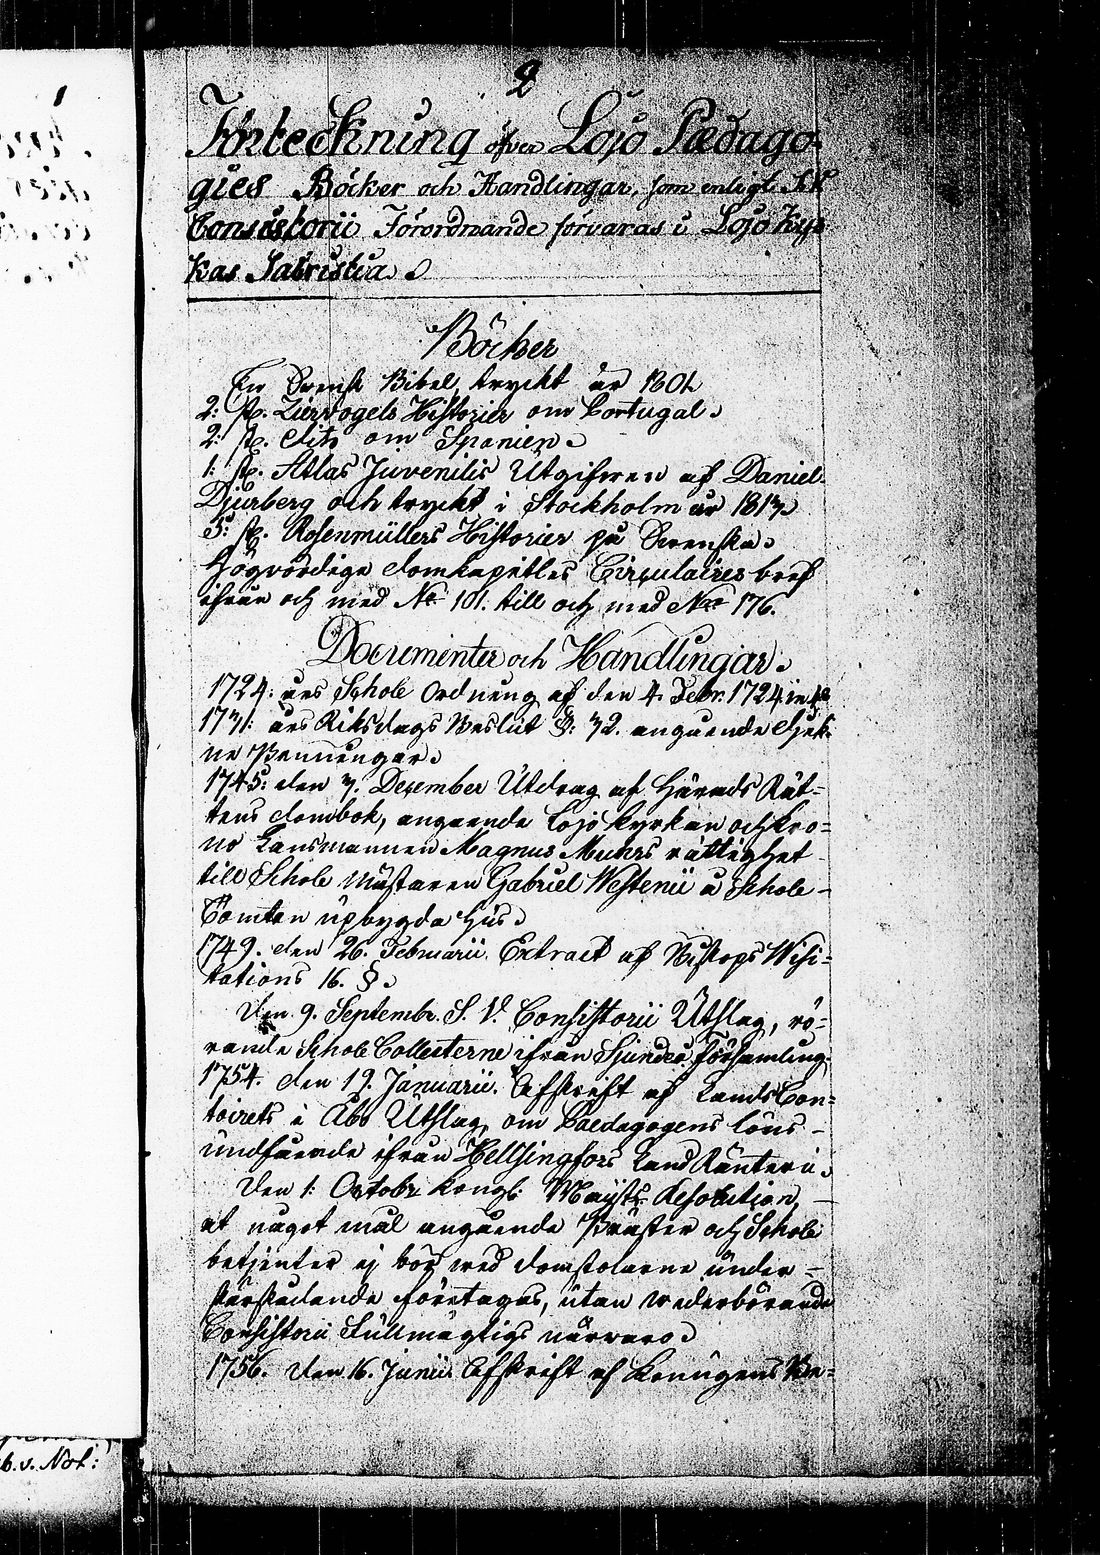 2
Förteckning öfver Lojo Pædago-
gies Böcker och Handlingar, som enligt
Consistorii Förordnande förvaras i Lojo Kyr
kas Sacristia.
Böcker
En Svensk Bibel, tryckt år 1801
2: st. Ziervogels Historier om Portugal.
2: st. dito om Spanien.
1: st. Atlas Juvenilis Utgifven af Daniel
Djurberg och tryckt i Stockholm år 1817.
5: st. Rosenmüllers Historier på Svenska.
Högvördige Domkapitlets Circulaires bref
ifrån och med No 101. till och med No 176.
Documenter och Handlingar.
1724: års Schole Ordning af den 4. Febr. 1724 in 4to
1731: års Riksdags Beslut §: 32. angående Djek-
ne Penningar.
1745: den 7. December Utdrag af Härads Rät-
tens dombok, angående Lojo Kyrkan och Kro-
no Lansmannen Magnus Muhrs rättighet
till Schole Mästaren Gabriel Westenii å Schole-
Tomten upbygda Hus.
1749. den 26. Februarii. Extract af Biskops Wisi-
tations 16. §.
Den 9. Septembr. S. V. Consistorii Utslag, rö-
rande Schole Collecterne ifrån Sjundeå Församling.
1754. den 19. Januarii. Afskrift af LandsCon-
toirets i Åbo Utslag, om Paedagogens löns-
undfående ifrån Hellsingfors Land Ränteri.
Den 1: Octobr. Kongl: Maj:ts Resolution,
at något mål angående Präster och Schole
betjenter ej bör wed domstolarne under-
stås företagas, utan wederbörande
Consistorii Fullmägtigs närwaro.
1756. den 16. Junii Afskrift af Konungens Be-
1
b. v. Not: